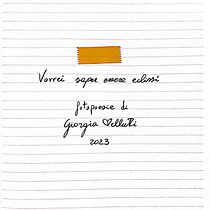 Vorrei saper essere eclissi
fotopoesie di
Giorgia
2023